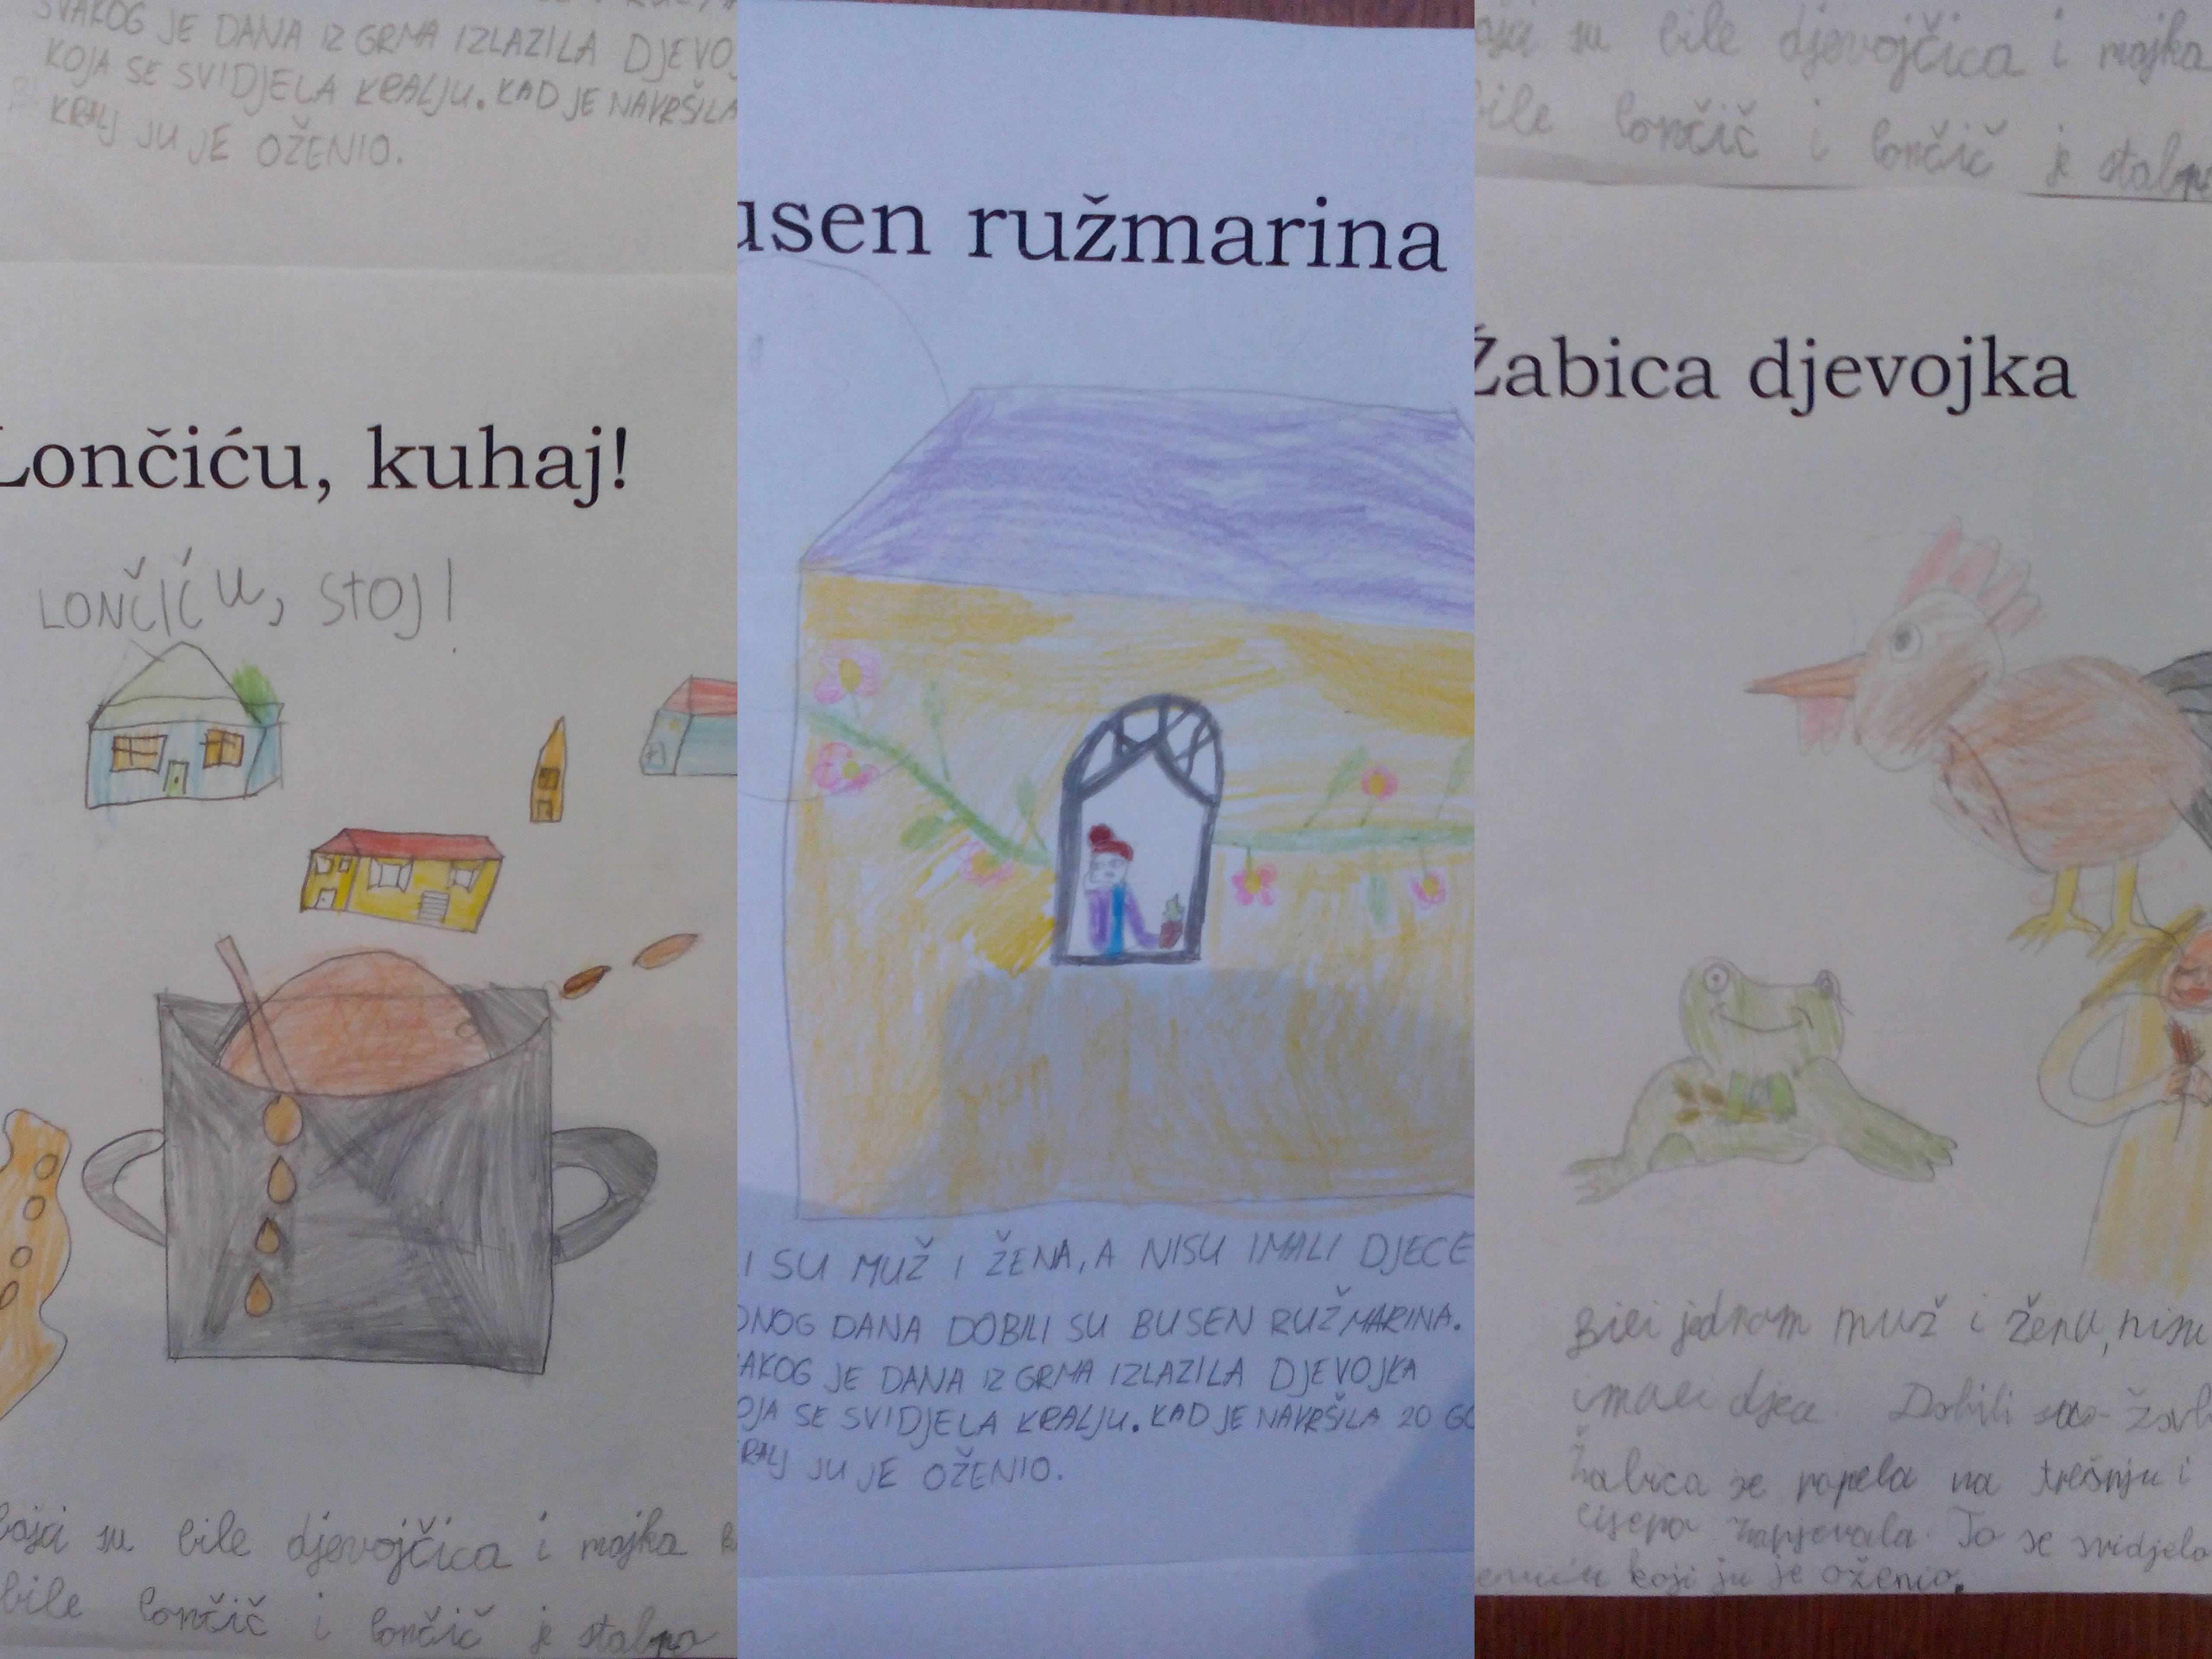 SVAKOG JE DANA IZ GRMA IZLAZILA DJEVO
KOJA SE SVIDJELA KRALJU. KAD JE NAVRŠILA
KRALJ JU JE OŽENIO.
Lončiću, kuhaj!
LONČIĆU, STOJ!
su bile djevojčica i majka
bile lončič i lončič je stalno
usen ružmarina
I SU MUŽ I ŽENA, A NISU IMALI DJECE
DNOG DANA DOBILI SU BUSEN RUŽMARINA.
AKOG JE DANA IZ GRMA IZLAZILA DJEVOJKA
OJA SE SVIDJELA KRALJU. KAD JE NAVRŠILA 20 GO
RALJ JU JE OŽENIO.
su bile djevojčica i majka
bile lončič i lončič je
Žabica djevojka
Bili jednom muž i žena, nisu
imali djece. Dobili
Žabica se popela na trešnju i
zapjevala. To se svidjelo
koji ju je oženio.